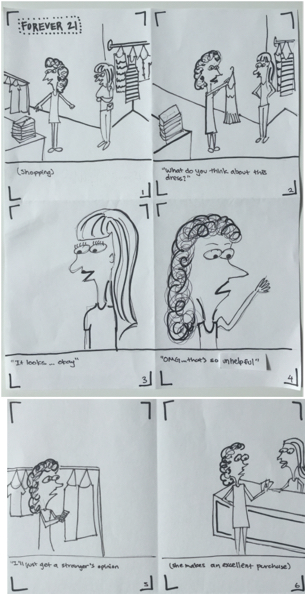 FOREVER 21
(Shopping)
1
"What do you think about this
dress?"
2
"It looks ... okay"
3
"OMG...that's so unhelpful"
4
"I'll just get a stranger's opinion
5
(she makes an excellent purchase)
6